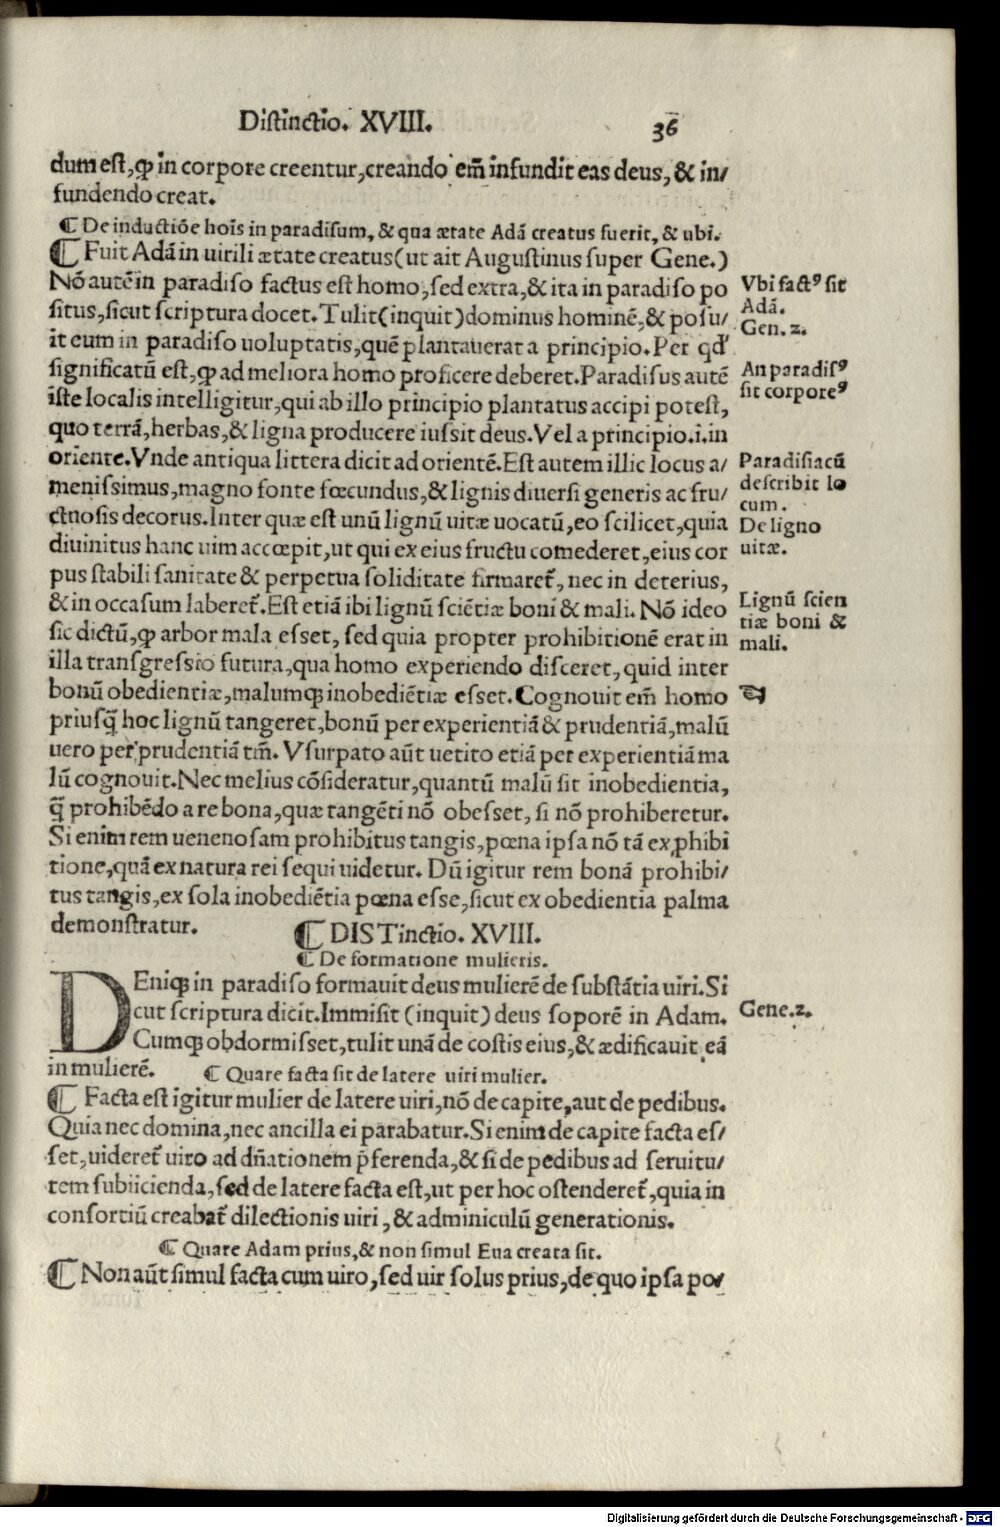 Distinctio. XVIII.
36
dum est, ꝙ in corpore creentur, creando em̃ infundit eas deus, & in/
fundendo creat.
¶ De inductiõe hoĩs in paradisum, & qua ætate Adã creatus fuerit, & ubi.
¶ Fuit Adã in uirili ætate creatus (ut ait Augustinus super Gene.)
Nõ autẽ in paradiso factus est homo, sed extra, & ita in paradiso po
situs, sicut scriptura docet. Tulit (inquit) dominus hominẽ, & posu/
it eum in paradiso uoluptatis, quẽ plantauerat a principio. Per qd'
significatũ est, ꝙ ad meliora homo proficere deberet. Paradisus autẽ
iste localis intelligitur, qui ab illo principio plantatus accipi potest,
quo terrã, herbas, & ligna producere iussit deus. Vel a principio .i. in
oriente. Vnde antiqua littera dicit ad orientẽ. Est autem illic locus a/
menissimus, magno fonte fœcundus, & lignis diuersi generis ac fru/
ctuosis decorus. Inter quæ est unũ lignũ uitæ uocatũ, eo scilicet, quia
diuinitus hanc uim accœpit, ut qui ex eius fructu comederet, eius cor
pus stabili sanitate & perpetua soliditate firmaret᷒, nec in deterius,
& in occasum laberet᷒. Est etiã ibi lignũ sciẽtiæ boni & mali. Nõ ideo
sic dictũ, ꝙ arbor mala esset, sed quia propter prohibitionẽ erat in
illa transgressio futura, qua homo experiendo disceret, quid inter
bonũ obedientiæ, malumqꝫ inobediẽtiæ esset. Cognouit em̃ homo
priusq̃ hoc lignũ tangeret, bonũ per experientiã & prudentiã, malũ
uero per prudentiã tm̃. Vsurpato aũt uetito etiã per experientiã ma
lũ cognouit. Nec melius cõsideratur, quantũ malũ sit inobedientia,
q̃ prohibẽdo a re bona, quæ tangẽti nõ obesset, si nõ prohiberetur.
Si enim rem uenenosam prohibitus tangis, pœna ipsa nõ tã ex ꝓhibi
tione, quã ex natura rei sequi uidetur. Dũ igitur rem bonã prohibi/
tus tangis, ex sola inobediẽtia pœna esse, sicut ex obedientia palma
demonstratur.
¶ DISTinctio. XVIII.
¶ De formatione mulieris.
DEniqꝫ in paradiso formauit deus mulierẽ de substãtia uiri. Si
cut scriptura dicit. Immisit (inquit) deus soporẽ in Adam.
Cumqꝫ obdormisset, tulit unã de costis eius, & ædificauit eã
in mulierẽ.
¶ Quare facta sit de latere uiri mulier.
¶ Facta est igitur mulier de latere uiri, nõ de capite, aut de pedibus.
Quia nec domina, nec ancilla ei parabatur. Si enim de capite facta es/
set, uideret᷒ uiro ad dñationem p̃ferenda, & si de pedibus ad seruitu/
tem subiicienda, sed de latere facta est, ut per hoc ostenderet᷒, quia in
consortiũ creabat᷒ dilectionis uiri, & adminiculũ generationis.
¶ Quare Adam prius, & non simul Eua creata sit.
¶ Non aũt simul facta cum uiro, sed uir solus prius, de quo ipsa po/
Vbi factꝰ sit
Adã.
Gen. 2.
An paradisꝰ
sit corporeꝰ
Paradisiacũ
describit lo
cum.
De ligno
uitæ.
Lignũ scien
tiæ boni &
mali.
Gene. 2.
Digitalisierung gefördert durch die Deutsche Forschungsgemeinschaft - DFG